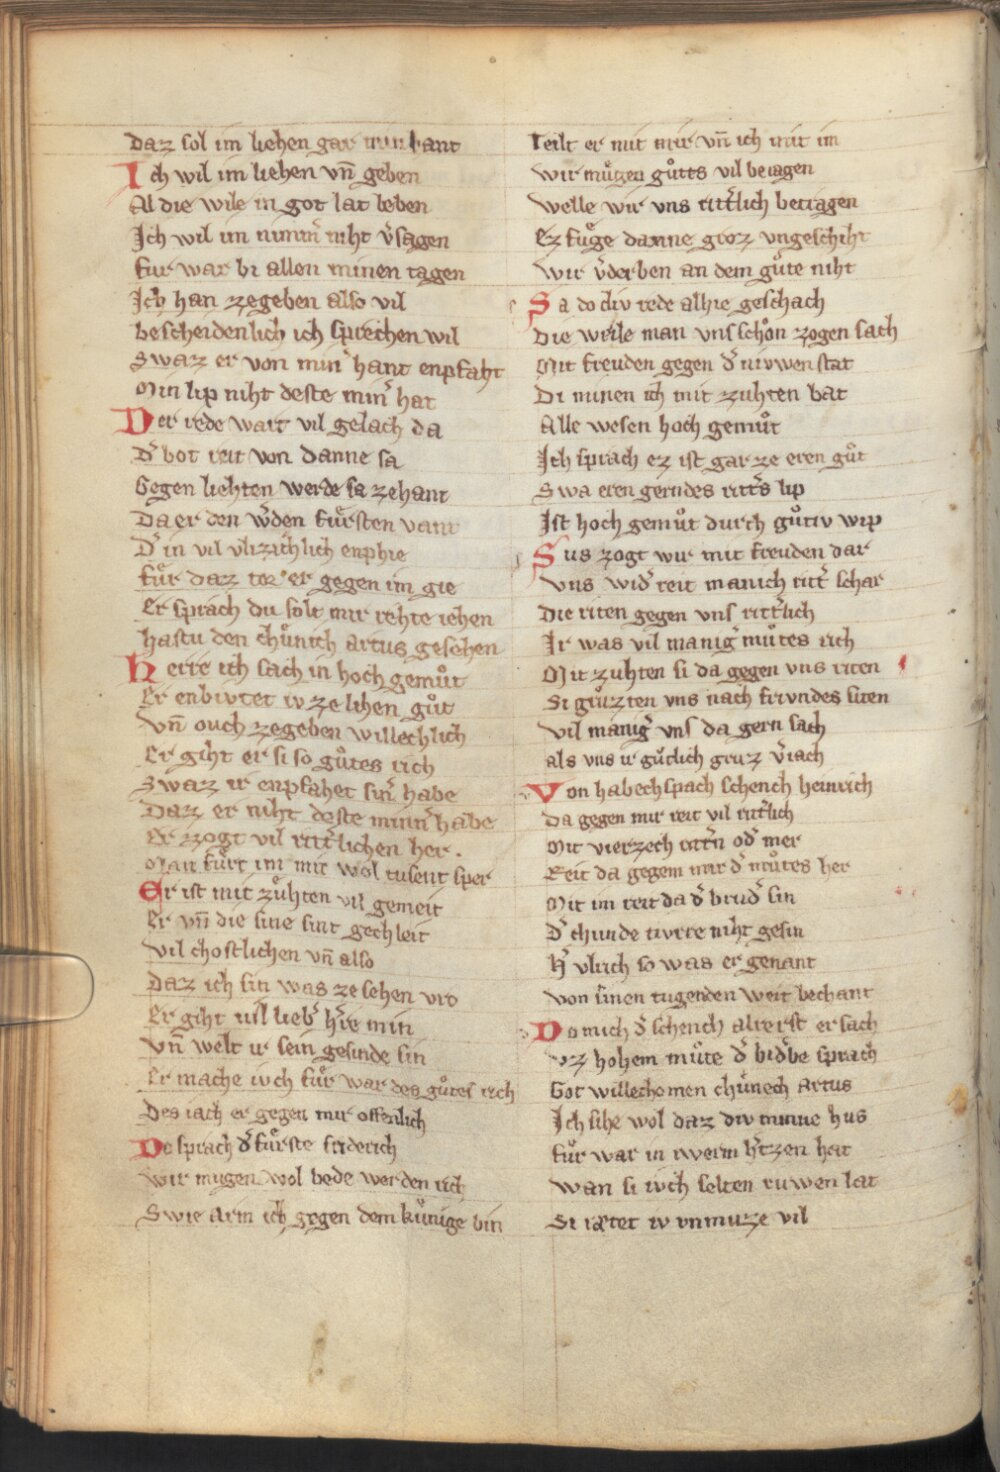 Daz sol im liehen gar min hant
Ich wil im liehen vn̄ geben
Al die wile in got lat leben
Ich wil im nimm̄ niht v̄sagen
fur war bi allen minen tagen
Ich han ze geben also vil
bescheidenlich ich sprechen wil
Swaz er von min̄ hant enpfaht
Min lip niht deste min̄ hat
Der rede wart vil gelach da
D̄ bot reit von danne sa
Gegen liehten werde sa zehant
Da er den w̄den fuͤrsten vant
D̄ in vil vlizichlich enphie
fuͤr daz tor er gegen im gie
Er sprach du solt mir rehte iehen
hastu den chuͤnich artus gesehen
Herre ich sach in hoch gemuͦt
Er enbivtet iv ze lihen guͦt
vn̄ ouch ze geben willechlich
Er giht er si so guͦtes rich
Swaz ir enpfahet sin̄ habe
Daz er niht deste minn̄ habe
Er zogt vil ritt̄lichen her.
Man fuͤrt im mit wol tusent sper
Er ist mit zuͤhten vil gemeit
Er vn̄ die sine sint gechleit
vil chostlichen vn̄ also
Daz ich sin was ze sehen vro
Er giht vil lieb̄ h̄re min
vn̄ welt ir sein gesinde sin
Er mache ivch fuͤr war des guͦtes rich
Des iach er gegen mir offenlich
Do sprach d̄ fuͤrste friderich
wir mugen wol bede werden rich
Swie arm ich gegen dem kuͤnige bin
Teilt er mit mir vn̄ ich mit im
wir muͤgen guͦtts vil beiagen
welle wir vns ritt̄lich betragen
Ez fuͤge danne groz vngeschiht
wir v̄derben an dem guͦte niht
Sa do div rede alhie geschach
Die weile man vns schon zogen sach
Mit freuden gegen d̄ nivwen stat
Di minen ich mit zuhten bat
Alle wesen hoch gemuͦt
Ich sprach ez ist gar ze eren guͦt
Swa eren gerndes ritt̄s lip
Ist hoch gemuͦt durch guͦtiv wip
Sus zogt wir mit freuden dar
vns wid̄ reit manich ritt̄ schar
Die riten gegen vns ritt̄lich
Ir was vil maniḡ muͦtes rich
Mit zuhten si da gegen vns riten
Si gruͦzten vns nach frivndes siten
vil maniḡ vns da gern sach
als vns ir guͦtlich gruz v̄iach
Von habechspach schench heinrich
Da gegen mir reit vil ritt̄lich
Mit vierzech ritt̄n od̄ mer
Reit da gegem mir d̄ muͦtes her
Mit im reit da d̄ brud̄ sin
D̄ chunde tivrre niht gesin
h̄ vlrich so was er genant
von sinen tugenden weit bechant
Do mich d̄ schench alrerst ersach
vz hohem muͦte d̄ bid̄be sprach
Got willechomen chuͤnech artus
Ich sihe wol daz div minne hus
fuͤr war in iwerm h̄tzen hat
wan si ivch selten ruwen lat
Si rætet iv vnmuze vil